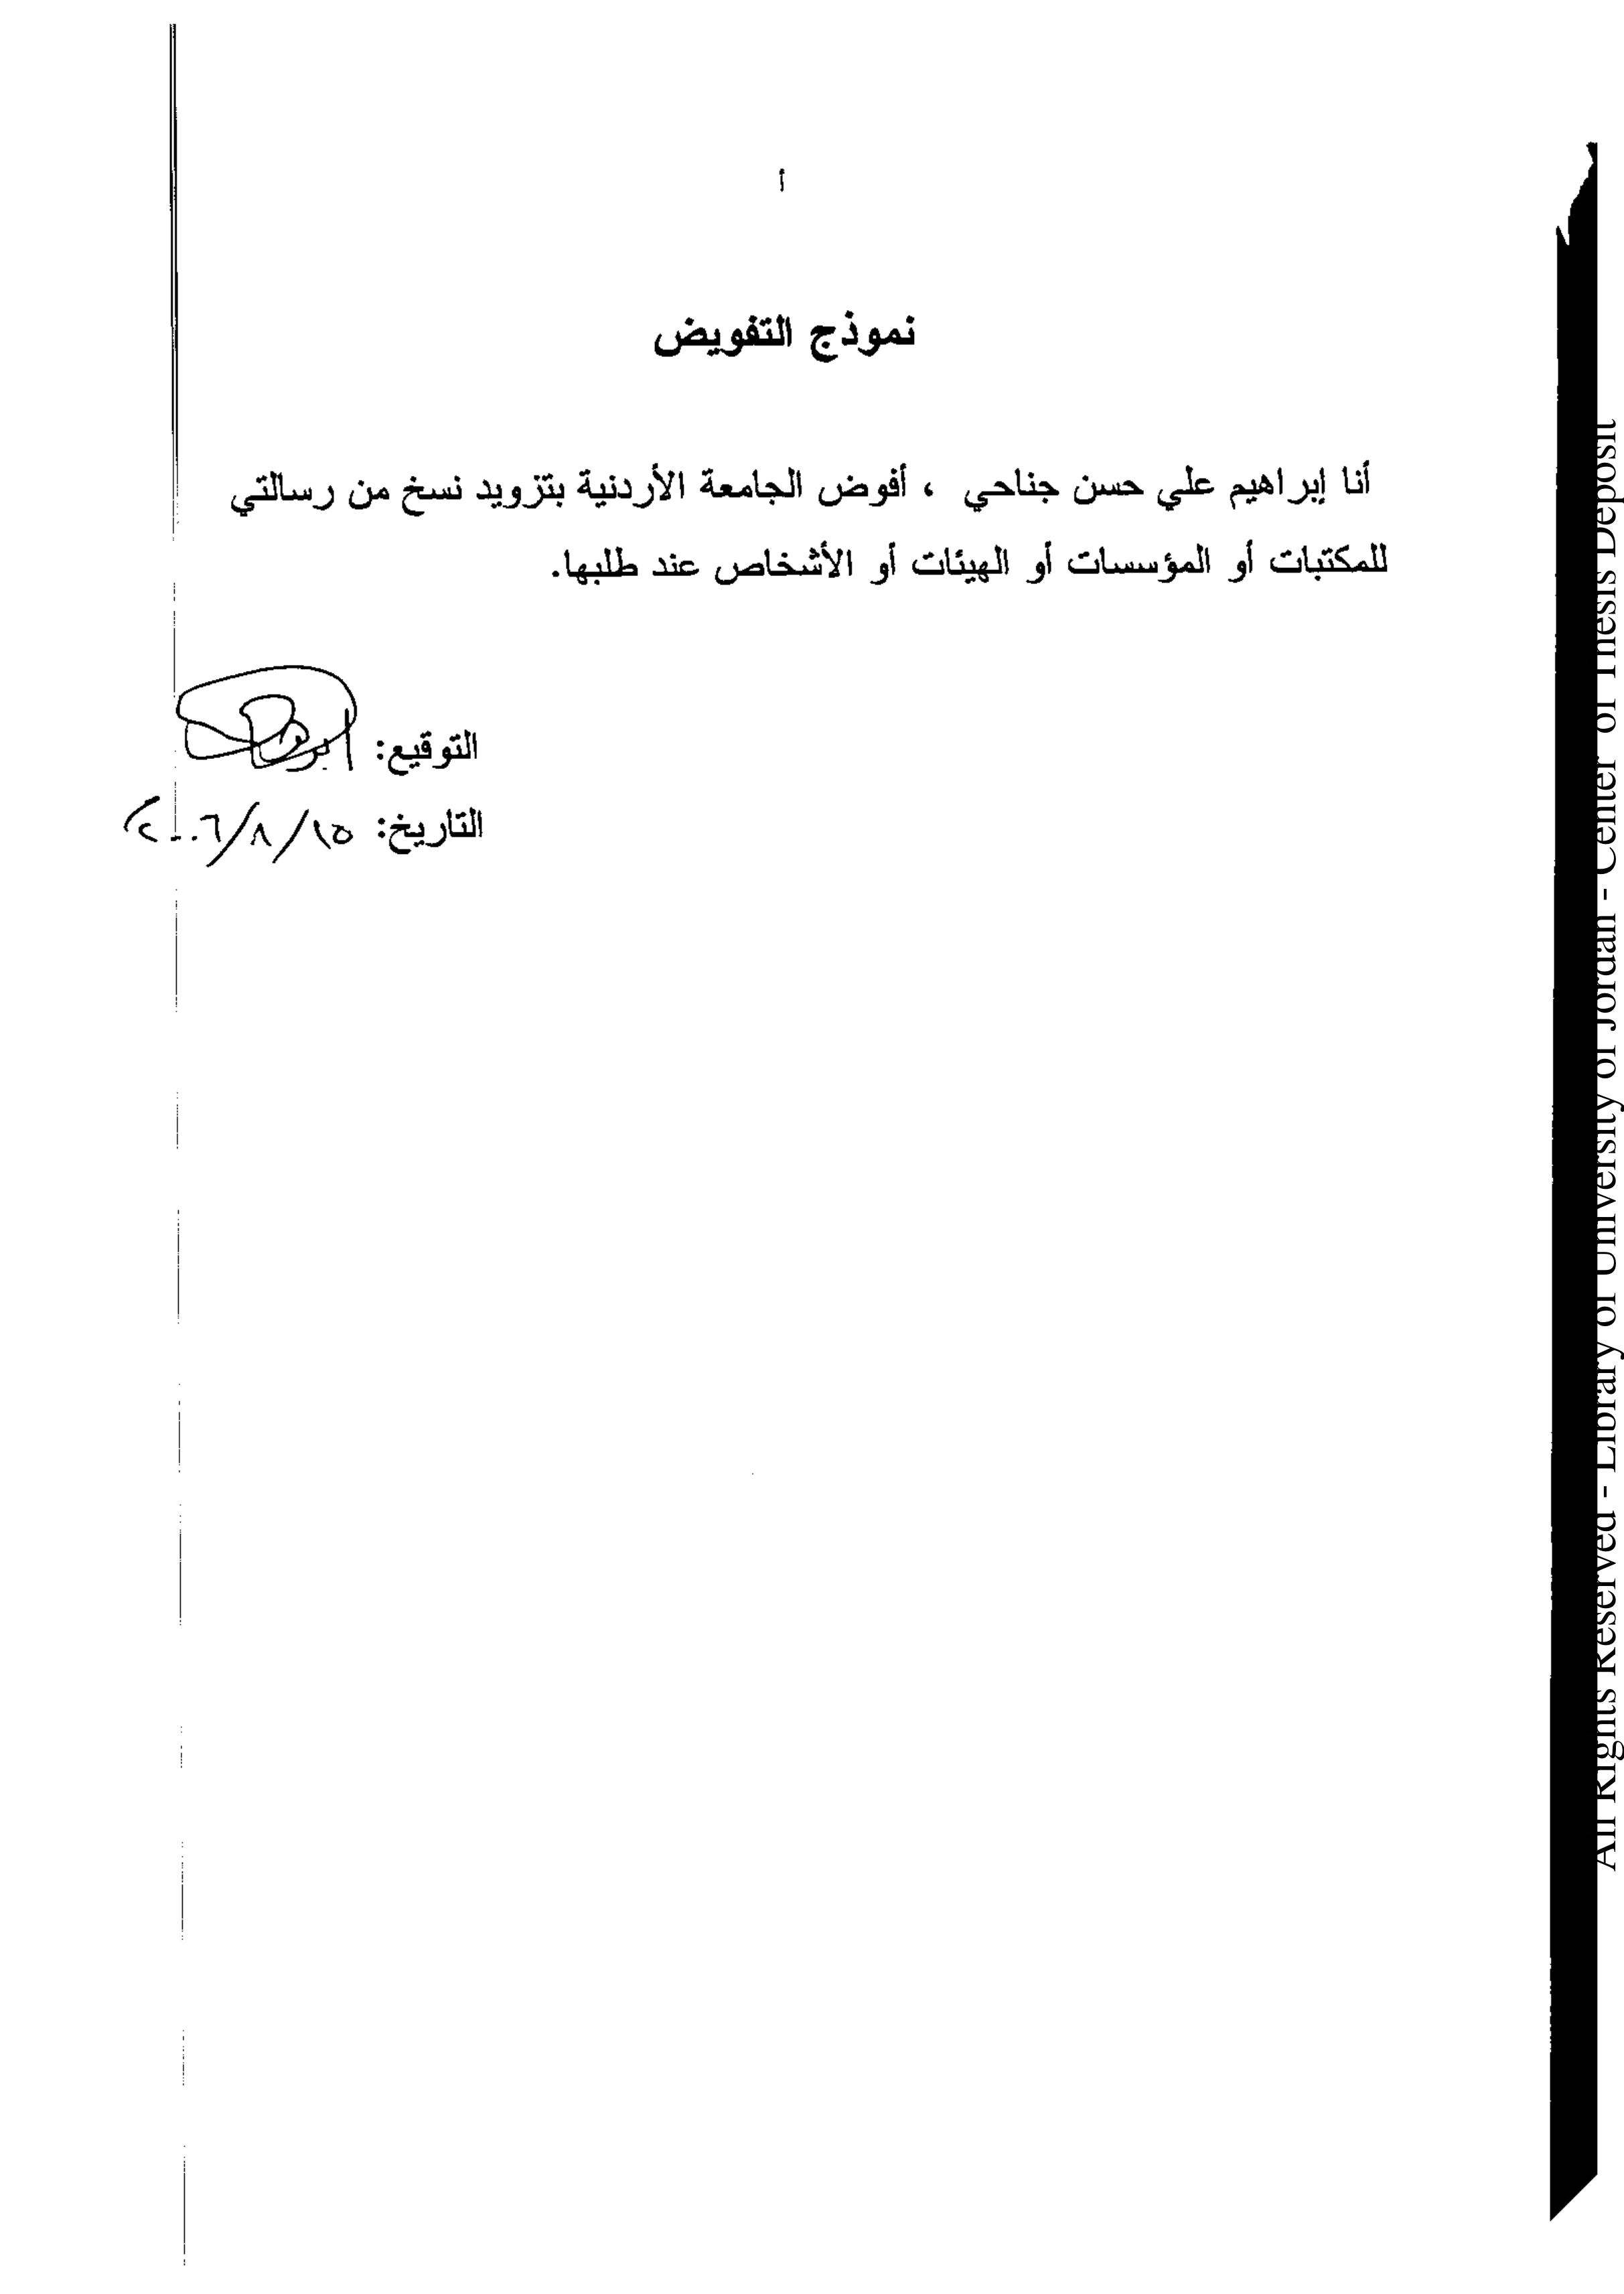 أ
نموذج التفويض
أنا إبراهيم علي حسن جناحي ، أفوض الجامعة الأردنية بتزويد نسخ من رسالتي
للمكتبات أو المؤسسات أو الهيئات أو الأشخاص عند طلبها.
التوقيع:
التاريخ: ١٥/٨/٢٠٠٦
All Rights Reserved - Library of University of Jordan - Center of Thesis Deposit